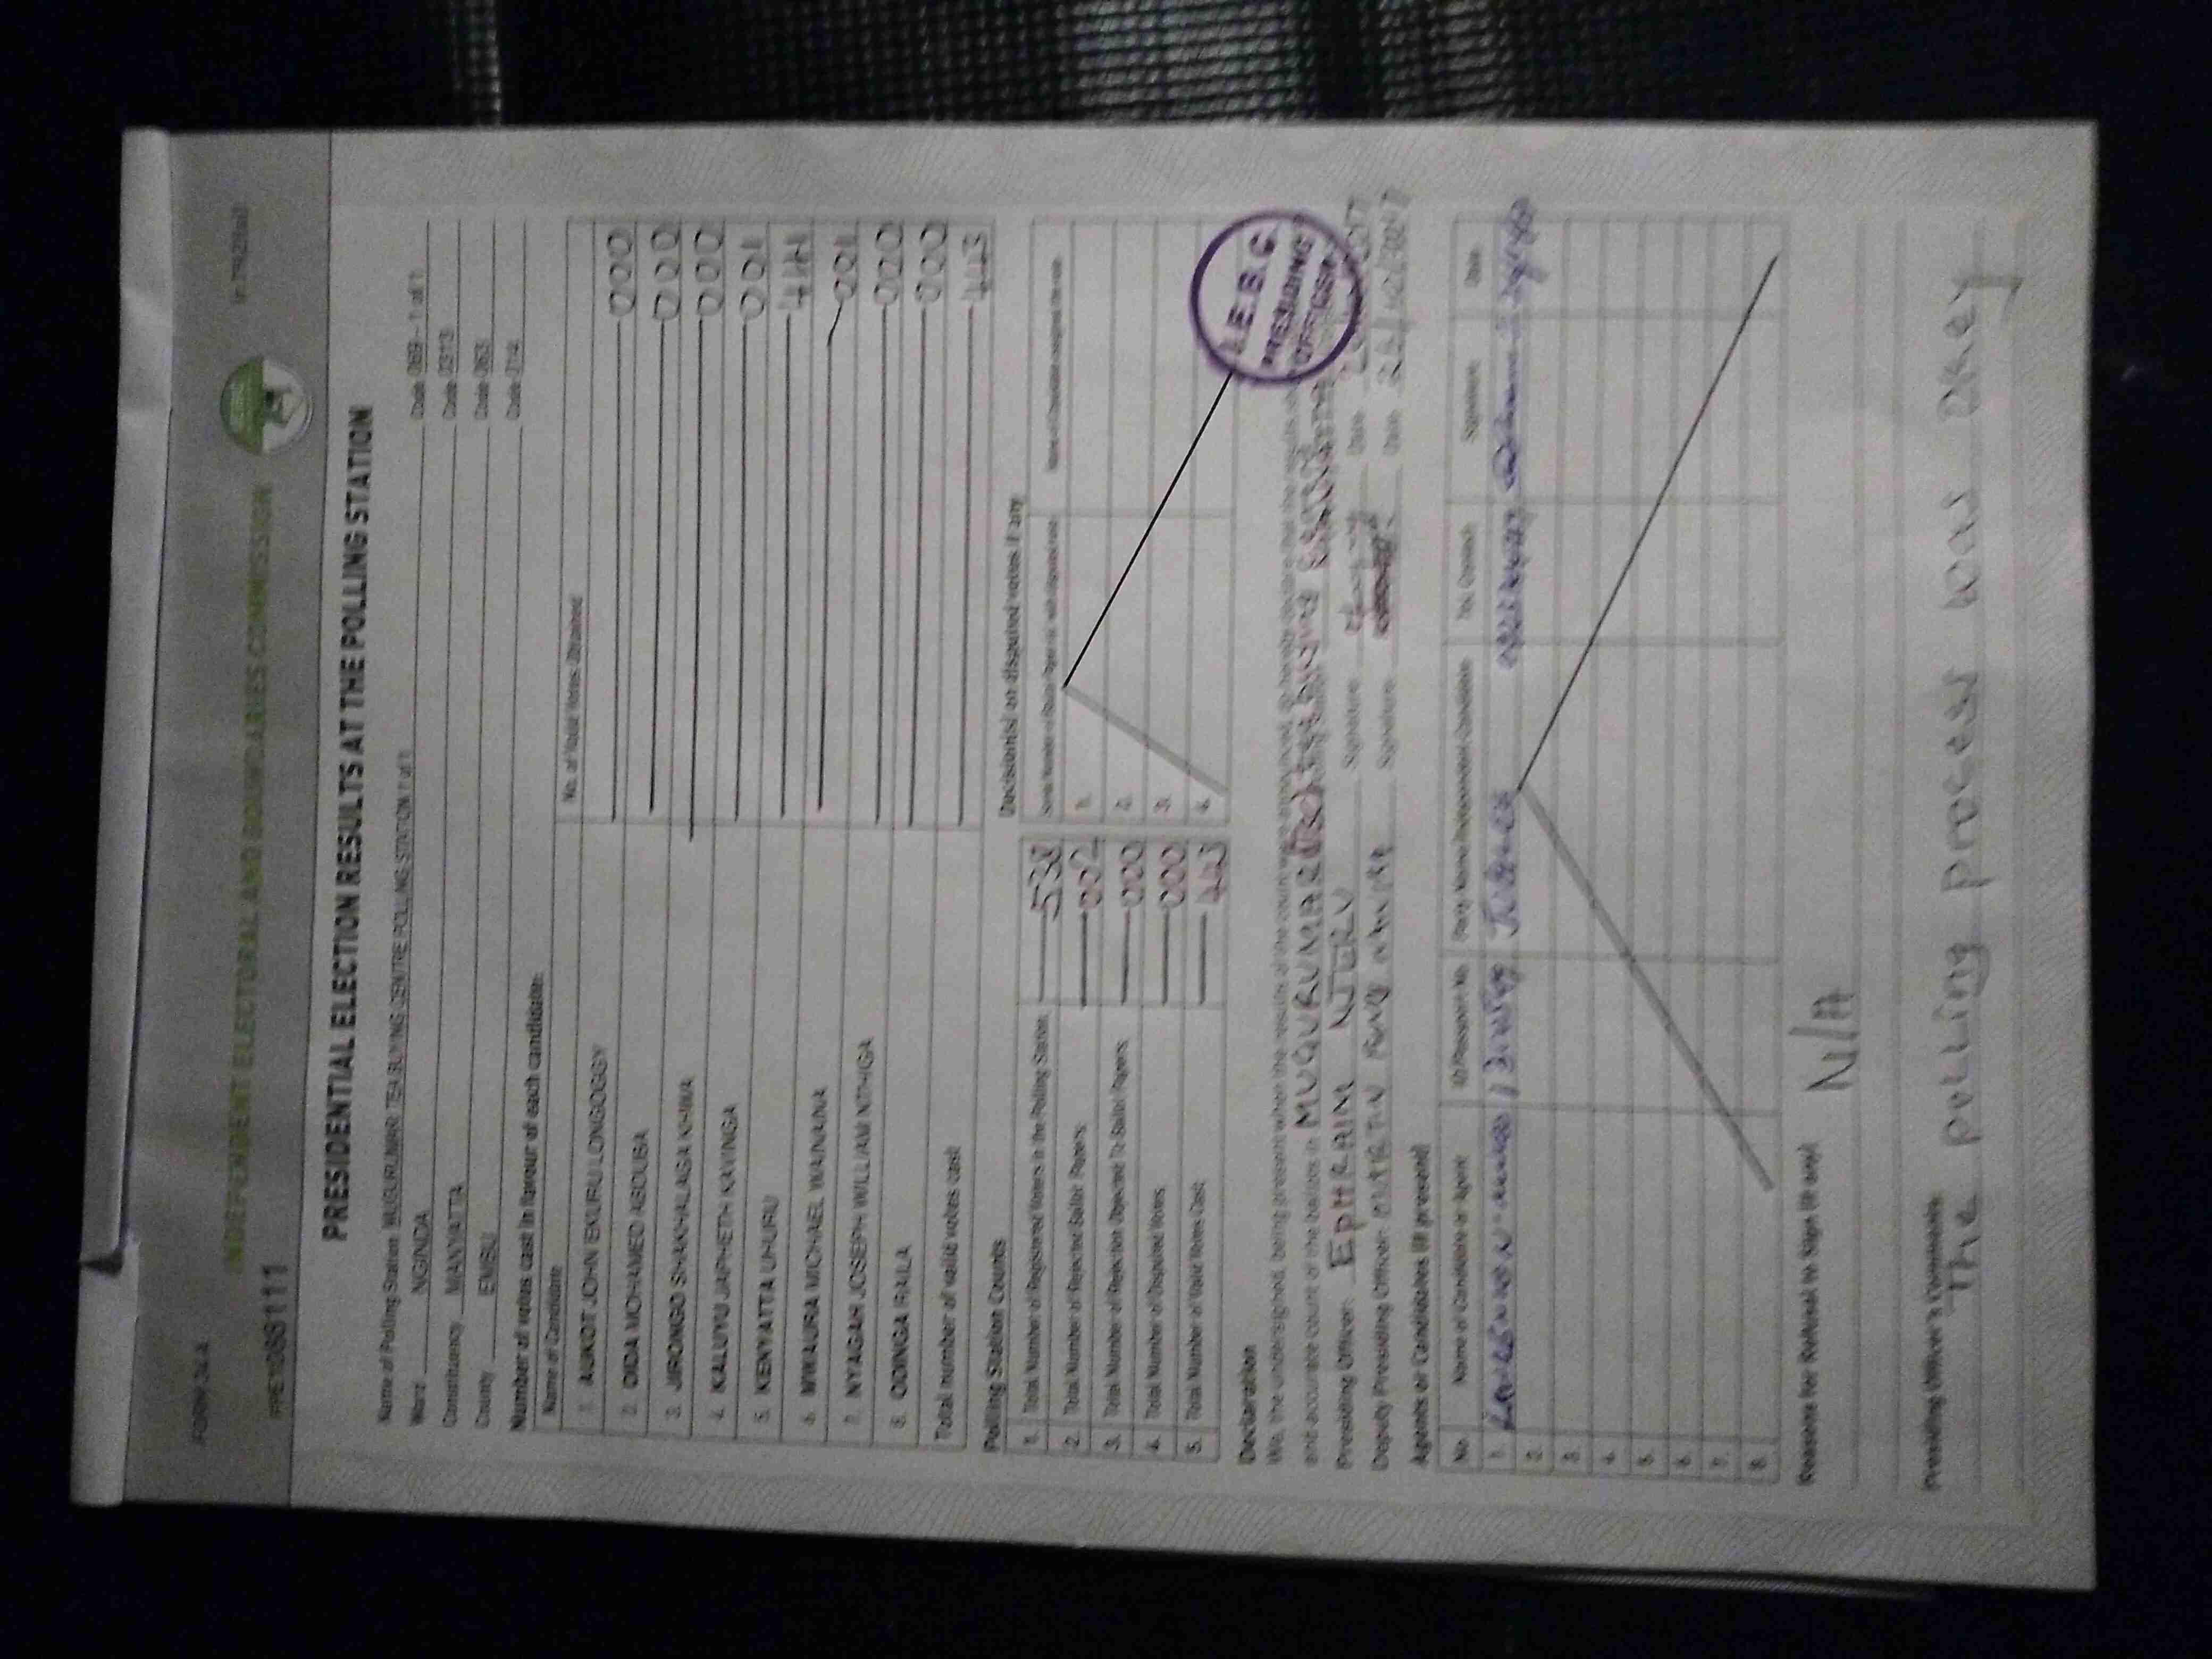 FORM 34A
INDEPENDENT ELECTORAL AND BOUNDARIES COMMISSION
PRESIDENTIAL ELECTION RESULTS AT THE POLLING STATION
Name of Polling Station MUGURUMARI TEA BUYING CENTRE POLLING STATION 1 of 1 Code 069 - 1 of 1
Ward NGINDA Code 0313
Constituency MANYATTA Code 063
County EMBU Code 014
Number of votes cast in favour of each candidate:
Name of Candidate No. of Valid Votes Obtained
1. AUKOT JOHN EKURU LONGOGGY 000
2. DIDA MOHAMED ABDUBA 000
3. JIRONGO SHAKHALAGA KHWA 000
4. KALUYU JAPHETH KAVINGA 001
5. KENYATTA UHURU 441
6. MWAURA MICHAEL WAINAINA 001
7. NYAGAH JOSEPH WILLIAM NTHIGA 000
8. ODINGA RAILA 000
Total number of valid votes cast 443
Polling Station Counts
1. Total Number of Registered Voters in the Polling Station 538
2. Total Number of Rejected Ballot Papers 002
3. Total Number of Rejection Objected To Ballot Papers 000
4. Total Number of Disputed Votes 000
5. Total Number of Valid Votes Cast 443
Decision(s) on disputed votes if any
1.
2.
3.
4.
I.E.B.C
PRESIDING
OFFICER
Declaration
We, the undersigned, being present when the results of the count
and accurate count of the ballots in MUGURUMARI
Presiding Officer EPHRAIM NJERU Signature Date
Deputy Presiding Officer Signature Date 26/10/2017
Agents or Candidates (if present)
No. Name of Candidate or Agent ID/Passport No. Party Name/Independent Candidate Tel. Contact Signature Date
1. Jubilee
2.
3.
4.
5.
6.
7.
8.
Reasons for Refusal to Sign (if any)
N/A
Presiding Officer's Comments
The polling process was okey